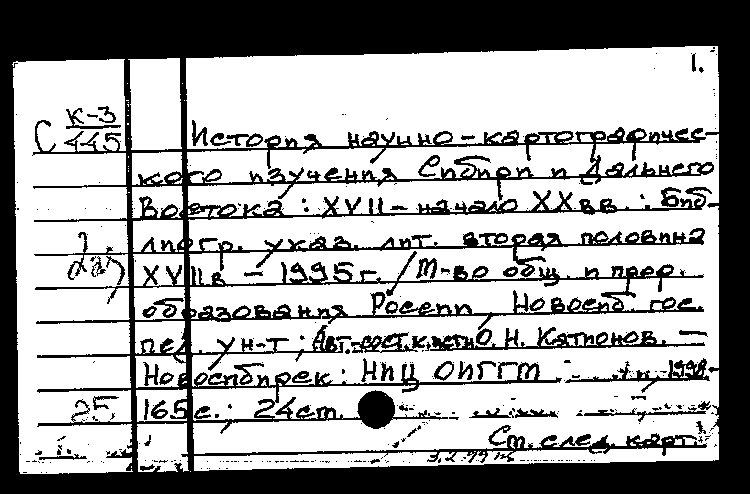 1.
С К-3/445 История научно-картографичес-
кого изучения Сибири и Дальнего
Востока: XVII - начало XX вв. : Биб-
лиогр. указ. лит. вторая половина
XVII в - 1995 г. / М-во общ. и проф.
образования России, Новосиб. гос.
пед. ун-т; Авт.-сост. к.ист.н О. Н. Катионов. —
Новосибирск: НИЦ ОИГГМ 1998.-
25 165 с.; 24 см.
См. след. карт.
3.2.99